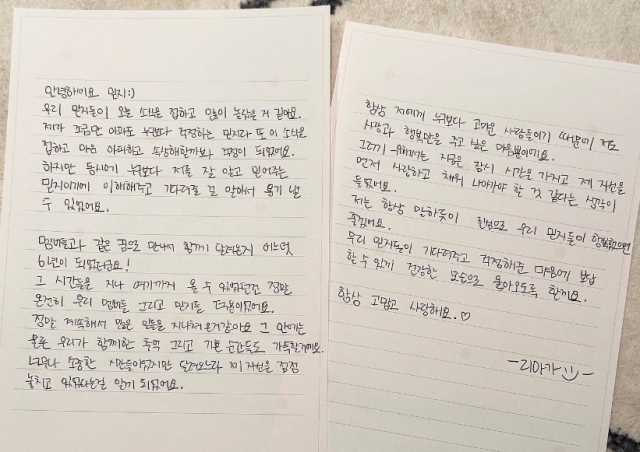 안녕하세요 믿지:)
우리 믿지들이 오늘 소식을 접하고 많이 놀랐을 거 같아요.
제가 조금만 아파도 누구보다 걱정하는 믿지라 또 이 소식을
접하고 마음 아파하고 속상해할까봐 걱정이 되었어요.
하지만 동시에 누구보다 저를 잘 알고 믿어주는
믿지이기에 이해해주고 기다려줄 걸 알아서 용기 낼
수 있었어요.
멤버들과 같은 꿈으로 만나서 함께 달려온지 어느덧
6년이 되었더라구요!
그 시간들을 지나 여기까지 올 수 있었던건 정말
온전히 우리 멤버들 그리고 믿지들 덕분이었어요.
정말 계속해서 많은 오늘을 지나쳐 온거같아요 그 안에는
물론 우리가 함께한 추억 그리고 기쁜 순간들도 가득할거에요.
너무나 소중한 시간들이었지만 달려오느라 제 자신을 점점
놓치고 있었다는걸 알게 되었어요.
항상 저에게 누구보다 고마운 사람들이기 때문에 저도
사랑과 행복만을 주고 싶은 마음뿐이에요.
그러기 위해서는 지금은 잠시 시간을 가지고 제 자신을
먼저 사랑하고 채워 나아가야 할 것 같다는 생각이
들었어요.
저는 항상 말하듯이 진심으로 우리 믿지들이 행복했으면
좋겠어요.
우리 믿지들이 기다려주고 걱정해준 마음에 보답
할 수 있게 건강한 모습으로 돌아오도록 할게요.
항상 고맙고 사랑해요.♡
-리아가 :) -